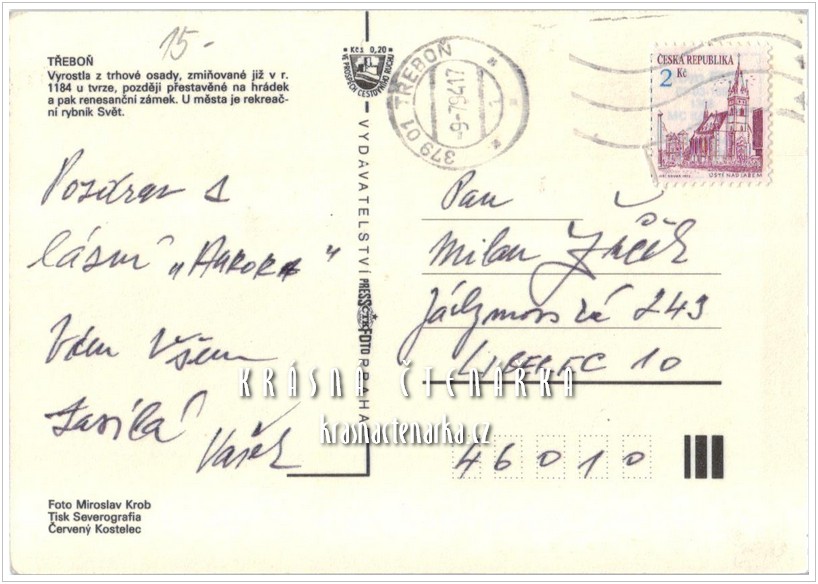 15.-
TŘEBOŇ
Vyrostla z trhové osady, zmiňované již v r.
1184 u tvrze, později přestavěné na hrádek
a pak renesanční zámek. U města je rekreač-
ní rybník Svět.
Kčs 0,20
VE PROSPĚCH CESTOVNÍHO RUCHU
379 01 TŘEBOŇ
-9.-7.94.17
1
ČESKÁ REPUBLIKA
2 Kč
ÚSTÍ NAD LABEM
Pozdrav s
lázní „AURORA"
Vám Všem
zasílá
Vašek
VYDAVATELSTVÍ PRESSFOTO PRAHA
ČTK
Pan
Milan
243
LIBEREC 10
46010
KRÁSNÁ ČTENÁRKA
krasnactenarka.cz
Foto Miroslav Krob
Tisk Severografia
Červený Kostelec